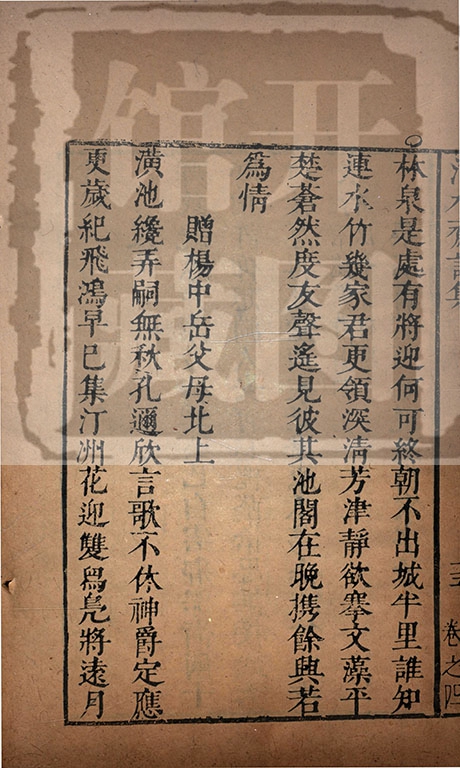 林泉是處有將迎何可終朝不出城半里誰知
連水竹幾家君更領深清芳津靜欲搴文藻平
楚蒼然度友聲遙見彼其池閣在晚携餘興若
爲情
贈楊中岳父母北上
潢池纔弄嗣無秋孔邇欣言歌不休神爵定應
更歲紀飛鴻早已集汀洲花迎雙舃鳧將遠月
卷之四
開圖
館藏